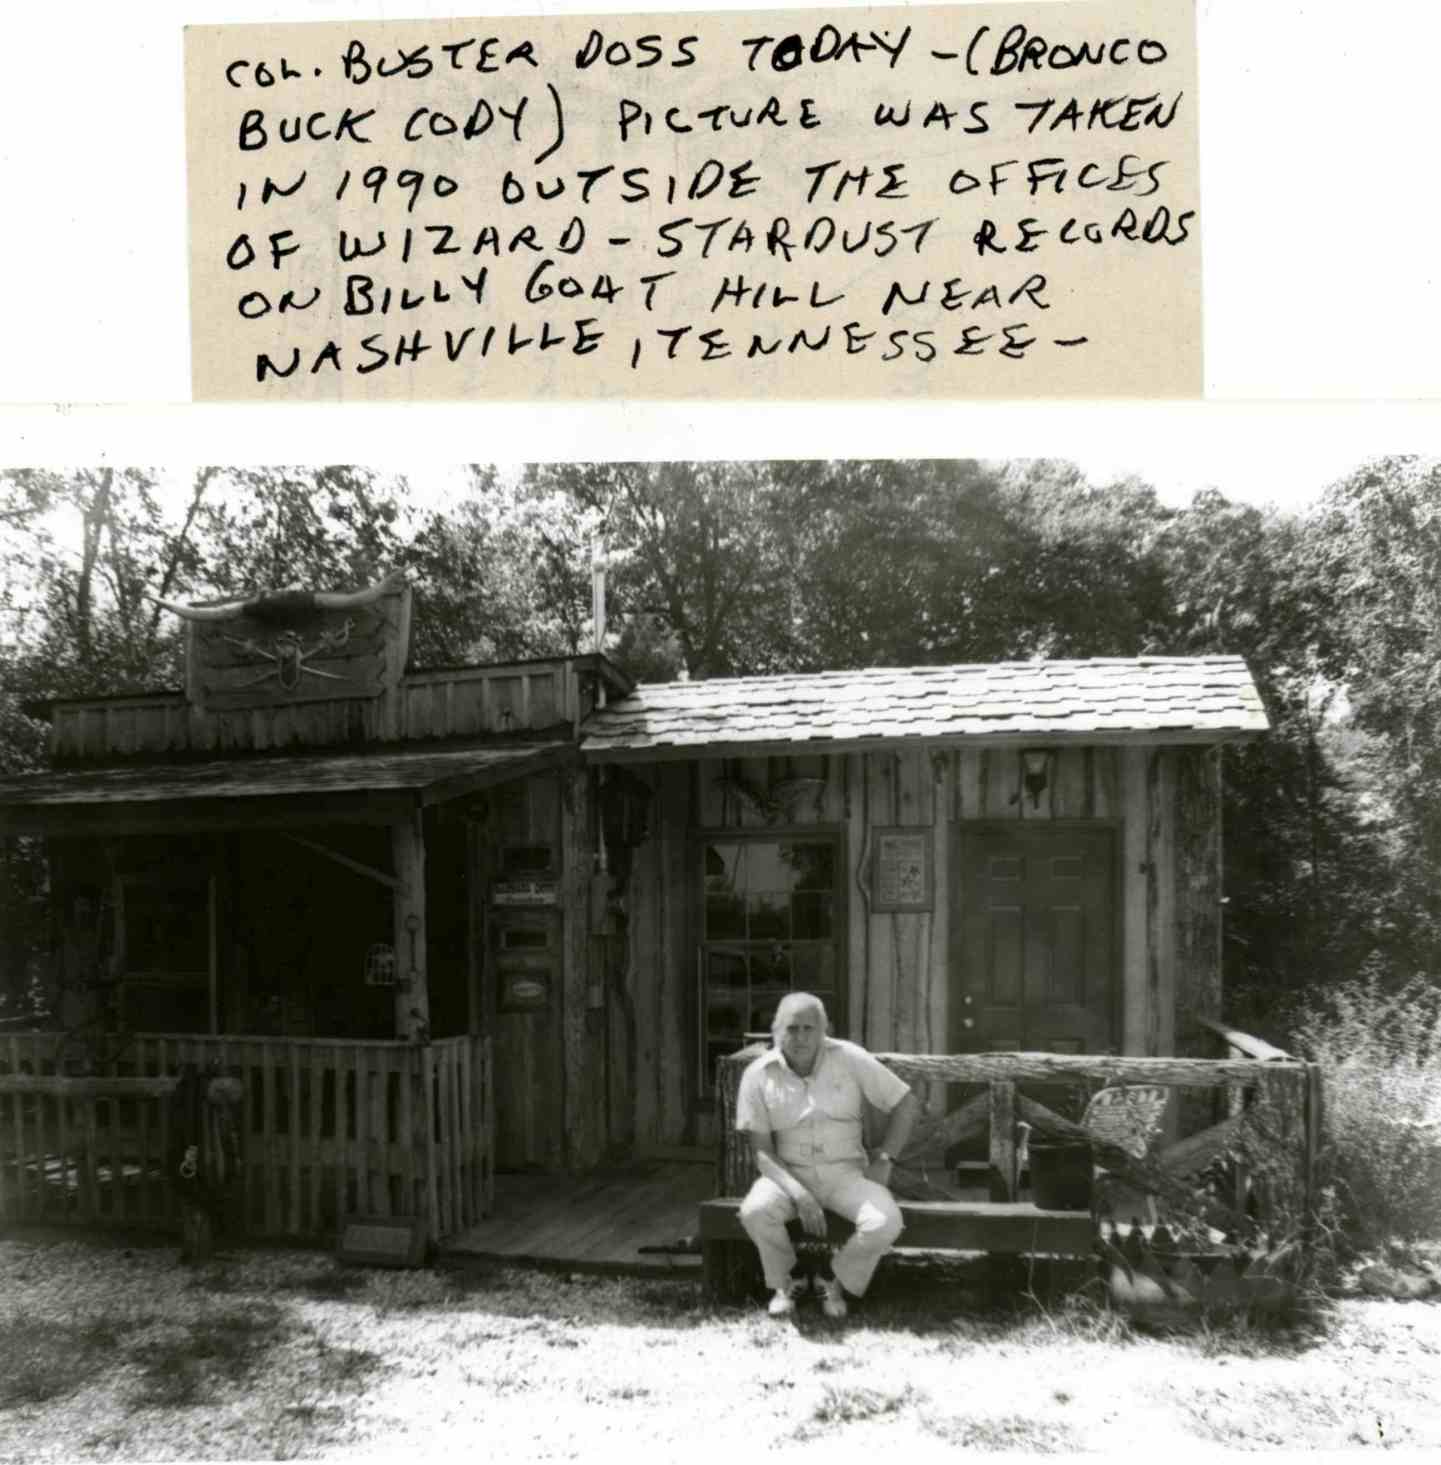 COL. BUSTER DOSS TODAY - (BRONCO
BUCK CODY) PICTURE WAS TAKEN
IN 1990 OUTSIDE THE OFFICES
OF WIZARD - STARDUST RECORDS
ON BILLY GOAT HILL NEAR
NASHVILLE, TENNESSEE -